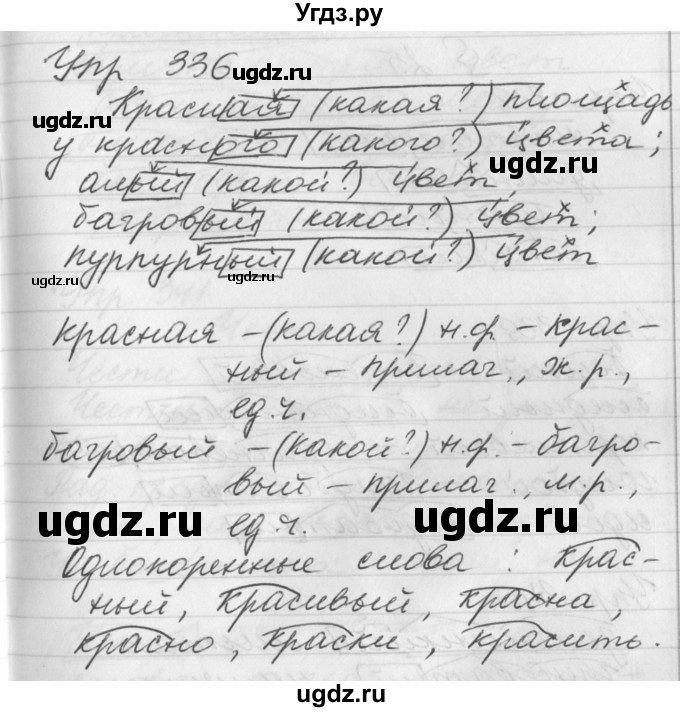 Угдз.ру
Упр 336
ugdz.ru
Красная (какая?) площадь
ugdz.ru
у красного (какого?) цвета;
ugdz.ru
алый (какой?) цвет,
багровый (какой?) цвет;
пурпурный (какой?) цвет
ugdz.ru
ugdz.ru
красная – (какая?) н.ф. – крас-
ный – прилаг., ж.р.,
ед.ч.
багровый – (какой?) н.ф. – багро-
вый – прилаг., м.р.,
ugdz.ru ед.ч. ugdz.ru
Однокоренные слова: крас-
ный, красивый, красна,
ugdz.ru ugdz.ru ugdz.ru
красно, краски, красить.
ugdz.ru